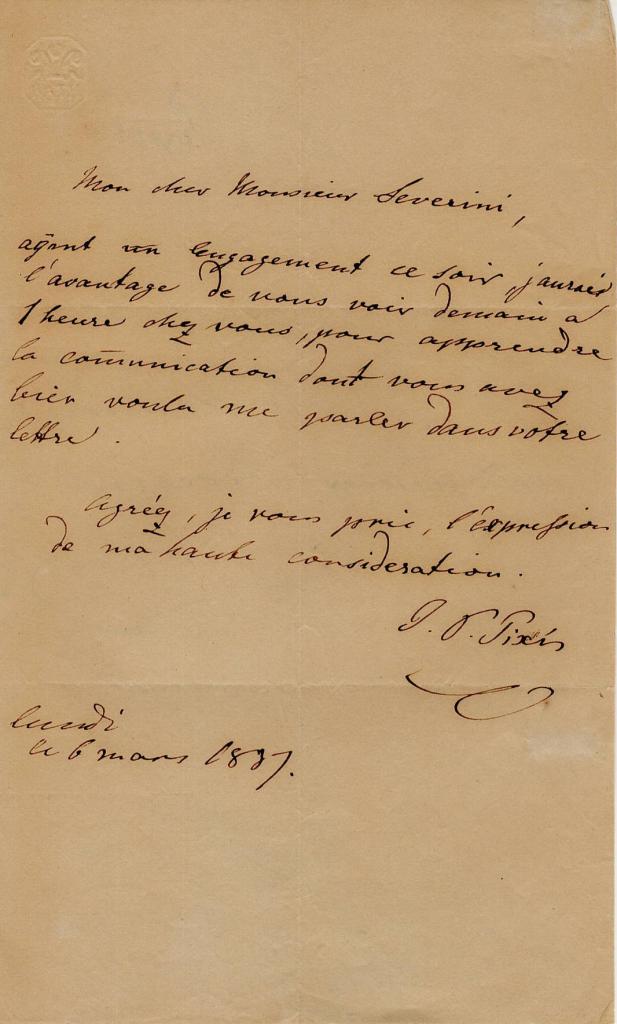 Mon cher Monsieur Severini,
ayant un engagement ce soir, jaurais
l'avantage de vous voir demain a
1 heure chez vous, pour apprendre
la communication dont vous avez
bien voulu me parler dans vôtre
lettre.
agréez, je vous prie, l'expression
de ma haute consideration.
J. P. Pixis
lundi
le 6 mars 1837.